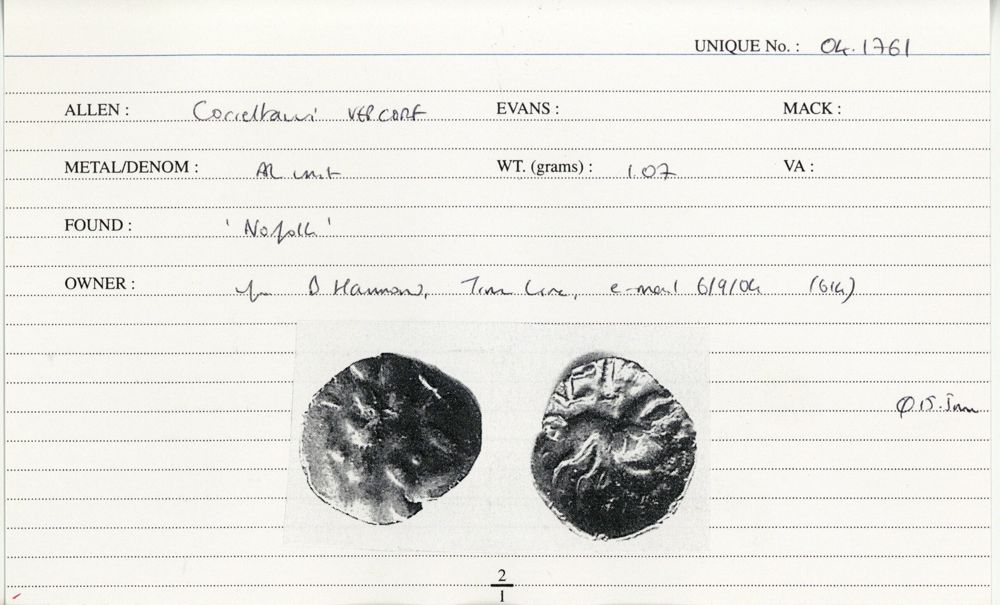 UNIQUE No. : 04.1761
ALLEN : Corieltauvi VEP CORF EVANS : MACK :
METAL/DENOM : AR unit WT. (grams) : 1.07 VA :
FOUND : 'Norfolk'
OWNER : D Hammond, e-mail 6/9/04 (614)
Ø 15.5mm
2
1